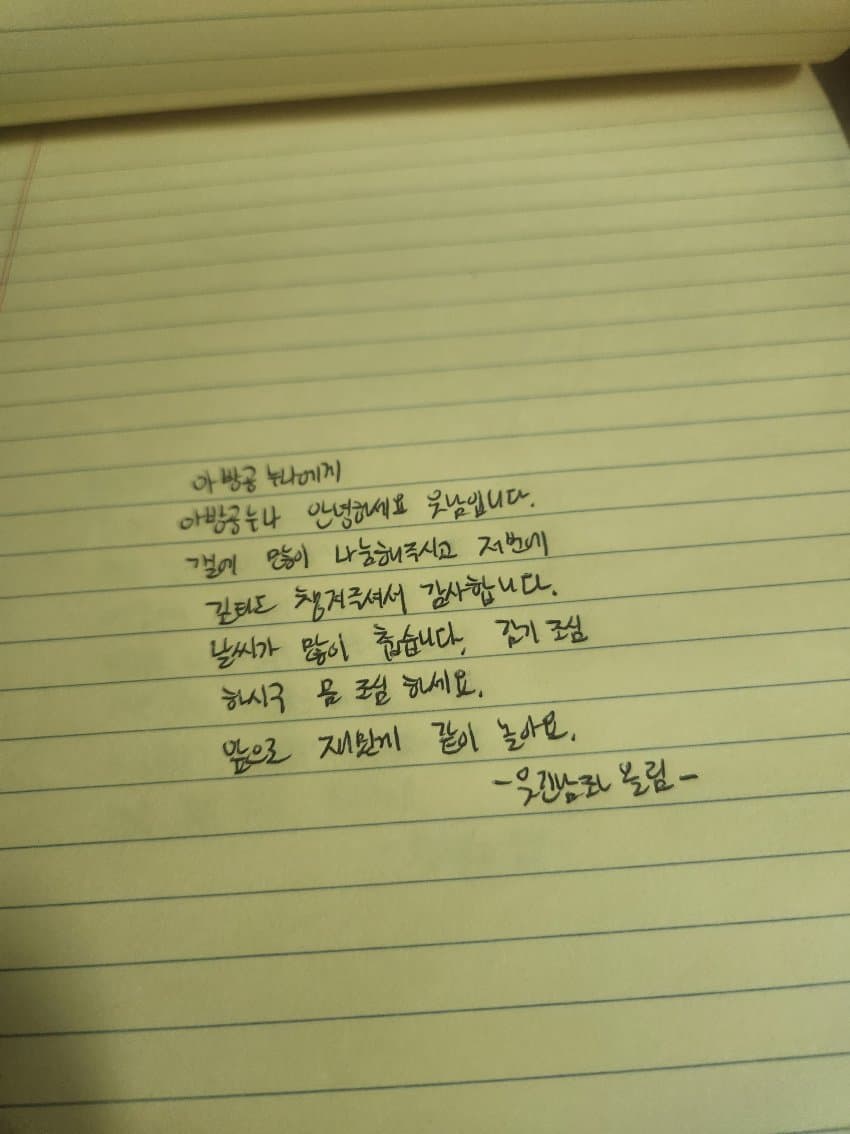 아방공 누나에게
아방공누나 안녕하세요 웃남입니다.
갤에 많이 나눔해주시고 저번에
깊티도 챙겨주셔서 감사합니다.
날씨가 많이 춥습니다. 감기 조심
하시구 몸 조심 하세요.
앞으로 재밌게 같이 놀아요.
-웃긴남좌 올림-